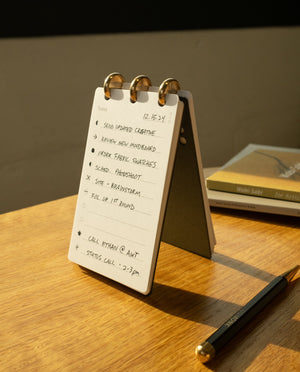 12.16.24
SEND UPDATED CREATIVE
REVIEW NEW MOODBOARD
ORDER FABRIC SWATCHES
SCHED. PHOTOSHOOT
SITE - BRAINSTORM
FUL OR 1ST ROUND
CALL ETHAN @ AWT
STATUS CALL - 2-3pm